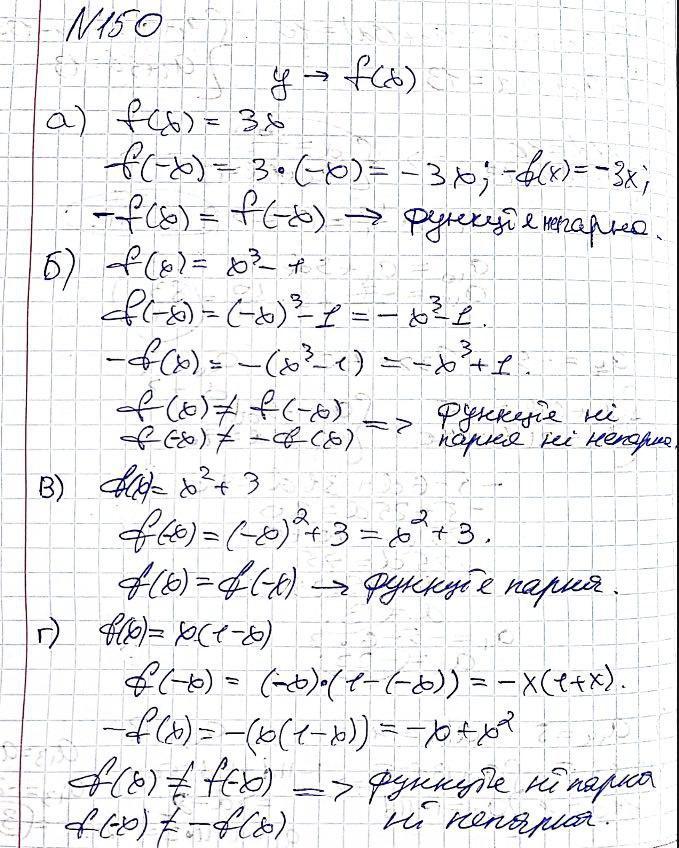 N150
y → f(x)
а) f(x) = 3x
f(-x) = 3·(-x) = -3x; -f(x) = -3x;
-f(x) = f(-x) → функція непарна.
б) f(x) = x³ - 1
f(-x) = (-x)³ - 1 = -x³ - 1.
-f(x) = -(x³ - 1) = -x³ + 1.
f(x) ≠ f(-x) => функція ні
f(-x) ≠ -f(x) парна ні непарна.
в) f(x) = x² + 3
f(-x) = (-x)² + 3 = x² + 3.
f(x) = f(-x) → функція парна.
г) f(x) = x(1-x)
f(-x) = (-x)·(1-(-x)) = -x(1+x).
-f(x) = -(x(1-x)) = -x + x²
f(x) ≠ f(-x) => функція ні парна
f(-x) ≠ -f(x) ні непарна.